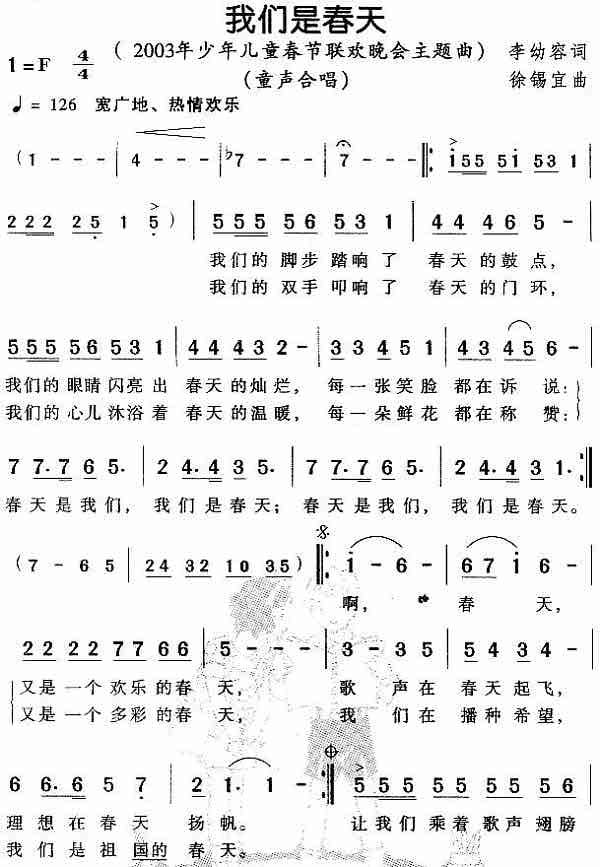 我们是春天
1=F 4/4 （2003年少年儿童春节联欢晚会主题曲） 李幼容词
（童声合唱） 徐锡宜曲
♩= 126 宽广地、热情欢乐
（1 - - - | 4 - - - | ♭7 - - - | 7 - - - |: i55 5i 53 1 |
222 25 1 5） | 555 56 53 1 | 44 46 5 - |
我们的脚步踏响了 春天的鼓点，
我们的双手叩响了 春天的门环，
555 56 53 1 | 44 43 2 - | 33 45 1 | 43 45 5 - |
我们的眼睛闪亮出 春天的灿烂， 每一张笑脸 都在诉 说：
我们的心儿沐浴着 春天的温暖， 每一朵鲜花 都在称 赞：
7 7.7 6 5. | 2 4.4 3 2. | 7 7.7 6 5. | 2 4.4 3 1. :|
春天是我们， 我们是春天； 春天是我们， 我们是春天。
（7 - 6 5 | 24 32 10 35） |: i - 6 - | 67 i 6 - |
啊， 春 天，
22 22 77 66 | 5 - - - | 3 - 3 5 | 54 3 4 - |
又是一个欢乐的春 天， 歌 声在 春天起飞，
又是一个多彩的春 天， 我 们在 播种希望，
6 6.6 5 7 | 2 1. 1 - | 5 555 55 55 56 |
理想在春天 扬帆。 让我们乘着歌声翅膀
我们是祖国的 春天。